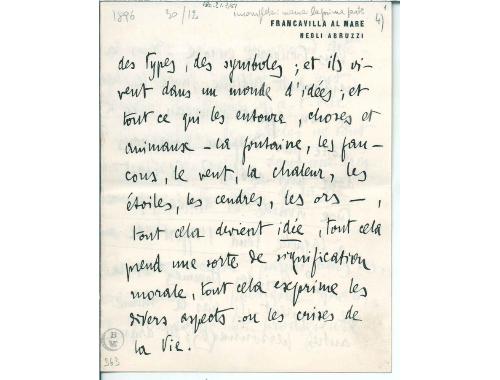 1896 30/12
incompleta: manca la prima parte
4)
FRANCAVILLA AL MARE
NEGLI ABRUZZI
des types, des symboles ; et ils vi-
vent dans un monde d'idées ; et
tout ce qui les entoure, choses et
animaux — la fontaine, les fau-
cons, le vent, la chaleur, les
étoiles, les cendres, les ors —,
tout cela devient idée, tout cela
prend une sorte de signification
morale, tout cela exprime les
divers aspects ou les crises de
la Vie.
363